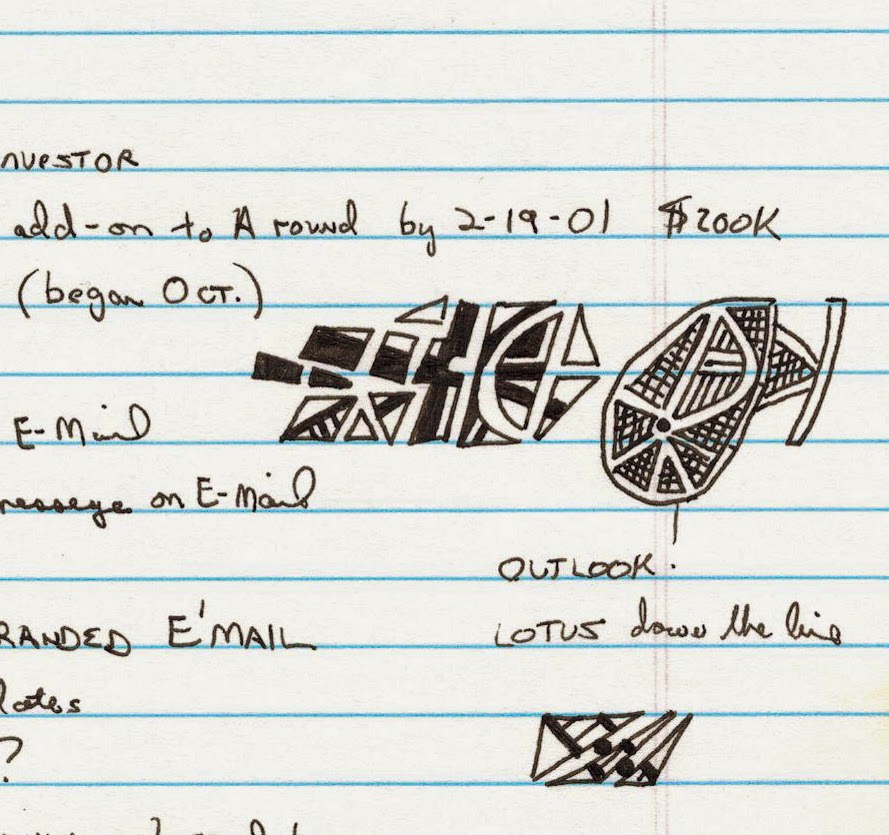 INVESTOR
add-on to A round by 2-19-01 $200K
(began OCT.)
E-Mail
message on E-Mail
OUTLOOK.
LOTUS down the line
RANDED E'MAIL
lates
?